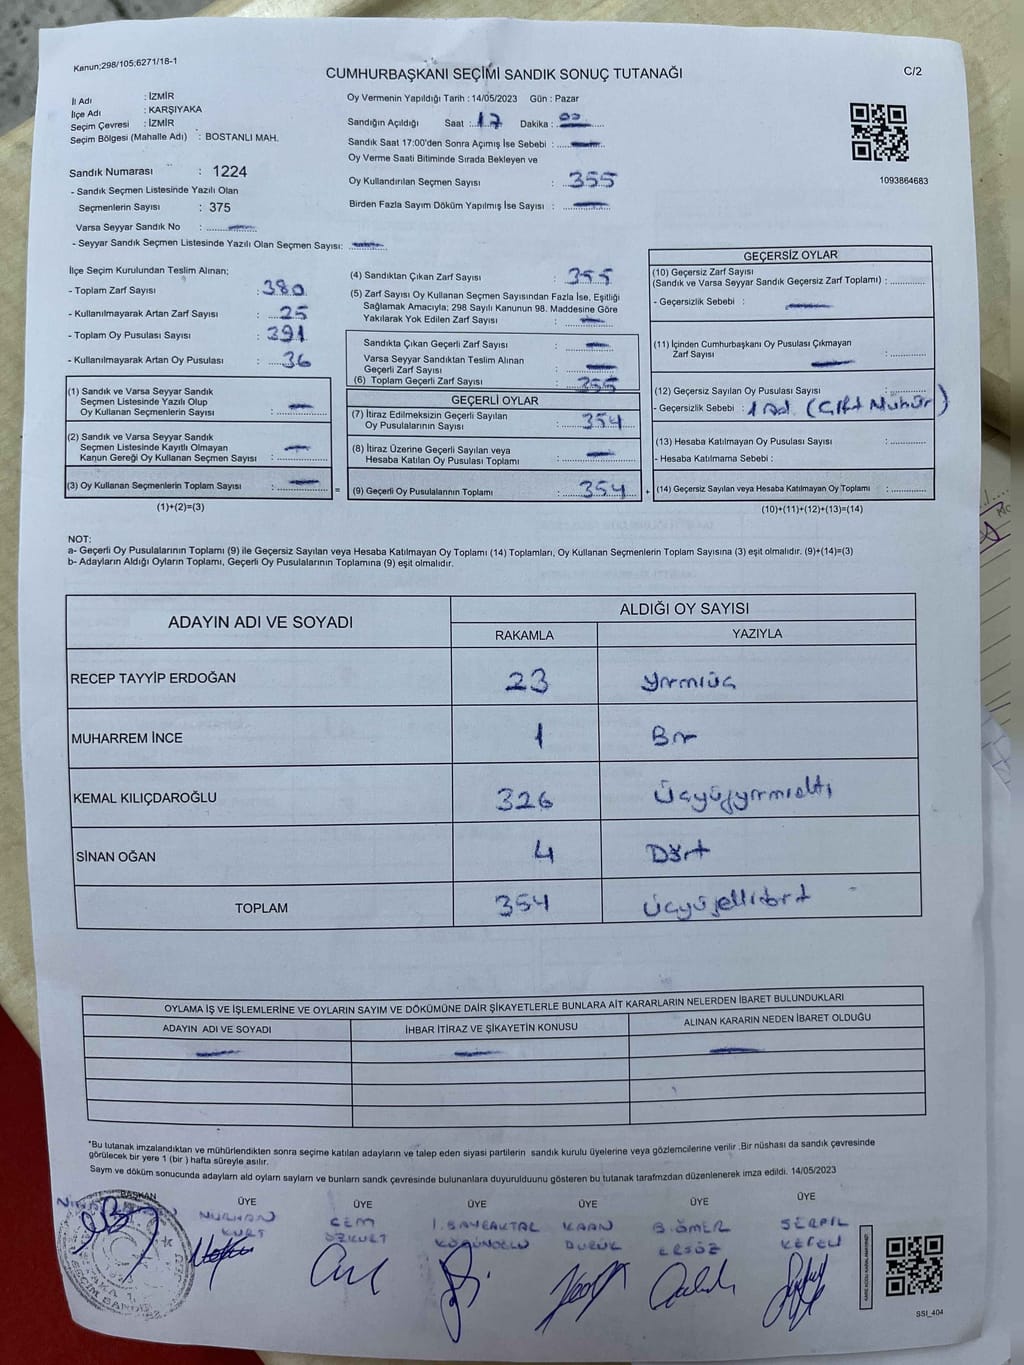 Kanun;298/105;6271/18-1
CUMHURBAŞKANI SEÇİMİ SANDIK SONUÇ TUTANAĞI
C/2
İl Adı : İZMİR
İlçe Adı : KARŞIYAKA
Seçim Çevresi : İZMİR
Seçim Bölgesi (Mahalle Adı) : BOSTANLI MAH.
Sandık Numarası : 1224
- Sandık Seçmen Listesinde Yazılı Olan
Seçmenlerin Sayısı : 375
Varsa Seyyar Sandık No :
- Seyyar Sandık Seçmen Listesinde Yazılı Olan Seçmen Sayısı:
Oy Vermenin Yapıldığı Tarih : 14/05/2023 Gün : Pazar
Sandığın Açıldığı Saat : 17 Dakika : 00
Sandık Saat 17:00'den Sonra Açımış İse Sebebi :
Oy Verme Saati Bitiminde Sırada Bekleyen ve
Oy Kullandırılan Seçmen Sayısı : 355
Birden Fazla Sayım Döküm Yapılmış İse Sayısı :
1093864683
İlçe Seçim Kurulundan Teslim Alınan;
- Toplam Zarf Sayısı : 380
- Kullanılmayarak Artan Zarf Sayısı : 25
- Toplam Oy Pusulası Sayısı : 391
- Kullanılmayarak Artan Oy Pusulası : 36
(1) Sandık ve Varsa Seyyar Sandık
Seçmen Listesinde Yazılı Olup
Oy Kullanan Seçmenlerin Sayısı :
(2) Sandık ve Varsa Seyyar Sandık
Seçmen Listesinde Kayıtlı Olmayan
Kanun Gereği Oy Kullanan Seçmen Sayısı :
(3) Oy Kullanan Seçmenlerin Toplam Sayısı : =
(1)+(2)=(3)
(4) Sandıktan Çıkan Zarf Sayısı : 355
(5) Zarf Sayısı Oy Kullanan Seçmen Sayısından Fazla İse, Eşitliği
Sağlamak Amacıyla; 298 Sayılı Kanunun 98. Maddesine Göre
Yakılarak Yok Edilen Zarf Sayısı :
Sandıkta Çıkan Geçerli Zarf Sayısı :
Varsa Seyyar Sandıktan Teslim Alınan
Geçerli Zarf Sayısı :
(6) Toplam Geçerli Zarf Sayısı : 355
GEÇERLİ OYLAR
(7) İtiraz Edilmeksizin Geçerli Sayılan
Oy Pusulalarının Sayısı : 354
(8) İtiraz Üzerine Geçerli Sayılan veya
Hesaba Katılan Oy Pusulası Toplamı :
(9) Geçerli Oy Pusulalarının Toplamı : 354 +
GEÇERSİZ OYLAR
(10) Geçersiz Zarf Sayısı
(Sandık ve Varsa Seyyar Sandık Geçersiz Zarf Toplamı) :
- Geçersizlik Sebebi :
(11) İçinden Cumhurbaşkanı Oy Pusulası Çıkmayan
Zarf Sayısı :
(12) Geçersiz Sayılan Oy Pusulası Sayısı :
- Geçersizlik Sebebi : 1 Ad. (Çift Mühür)
(13) Hesaba Katılmayan Oy Pusulası Sayısı :
- Hesaba Katılmama Sebebi :
(14) Geçersiz Sayılan veya Hesaba Katılmayan Oy Toplamı :
(10)+(11)+(12)+(13)=(14)
NOT:
a- Geçerli Oy Pusulalarının Toplamı (9) ile Geçersiz Sayılan veya Hesaba Katılmayan Oy Toplamı (14) Toplamları, Oy Kullanan Seçmenlerin Toplam Sayısına (3) eşit olmalıdır. (9)+(14)=(3)
b- Adayların Aldığı Oyların Toplamı, Geçerli Oy Pusulalarının Toplamına (9) eşit olmalıdır.
ADAYIN ADI VE SOYADI
ALDIĞI OY SAYISI
RAKAMLA YAZIYLA
RECEP TAYYİP ERDOĞAN 23 yirmiüç
MUHARREM İNCE 1 Bir
KEMAL KILIÇDAROĞLU 326 Üçyüzyirmialtı
SİNAN OĞAN 4 Dört
TOPLAM 354 üçyüzellidört
OYLAMA İŞ VE İŞLEMLERİNE VE OYLARIN SAYIM VE DÖKÜMÜNE DAİR ŞİKAYETLERLE BUNLARA AİT KARARLARIN NELERDEN İBARET BULUNDUKLARI
ADAYIN ADI VE SOYADI İHBAR İTİRAZ VE ŞİKAYETİN KONUSU ALINAN KARARIN NEDEN İBARET OLDUĞU
*Bu tutanak imzalandıktan ve mühürlendikten sonra seçime katılan adayların ve talep eden siyasi partilerin sandık kurulu üyelerine veya gözlemcilerine verilir .Bir nüshası da sandık çevresinde
görülecek bir yere 1 (bir ) hafta süreyle asılır.
Sayım ve döküm sonucunda adayların aldı oyların sayların ve bunların sandk çevresinde bulunanlara duyurulduunu gösteren bu tutanak tarafmzdan düzenlenerek imza edildi. 14/05/2023
BAŞKAN ÜYE ÜYE ÜYE ÜYE ÜYE ÜYE
NURHAN CEM İ.BAYRAKTAR KAAN B.ÖMER SERPİL
KURT ÖZKURT DURUK ERSÖZ
SSI_404